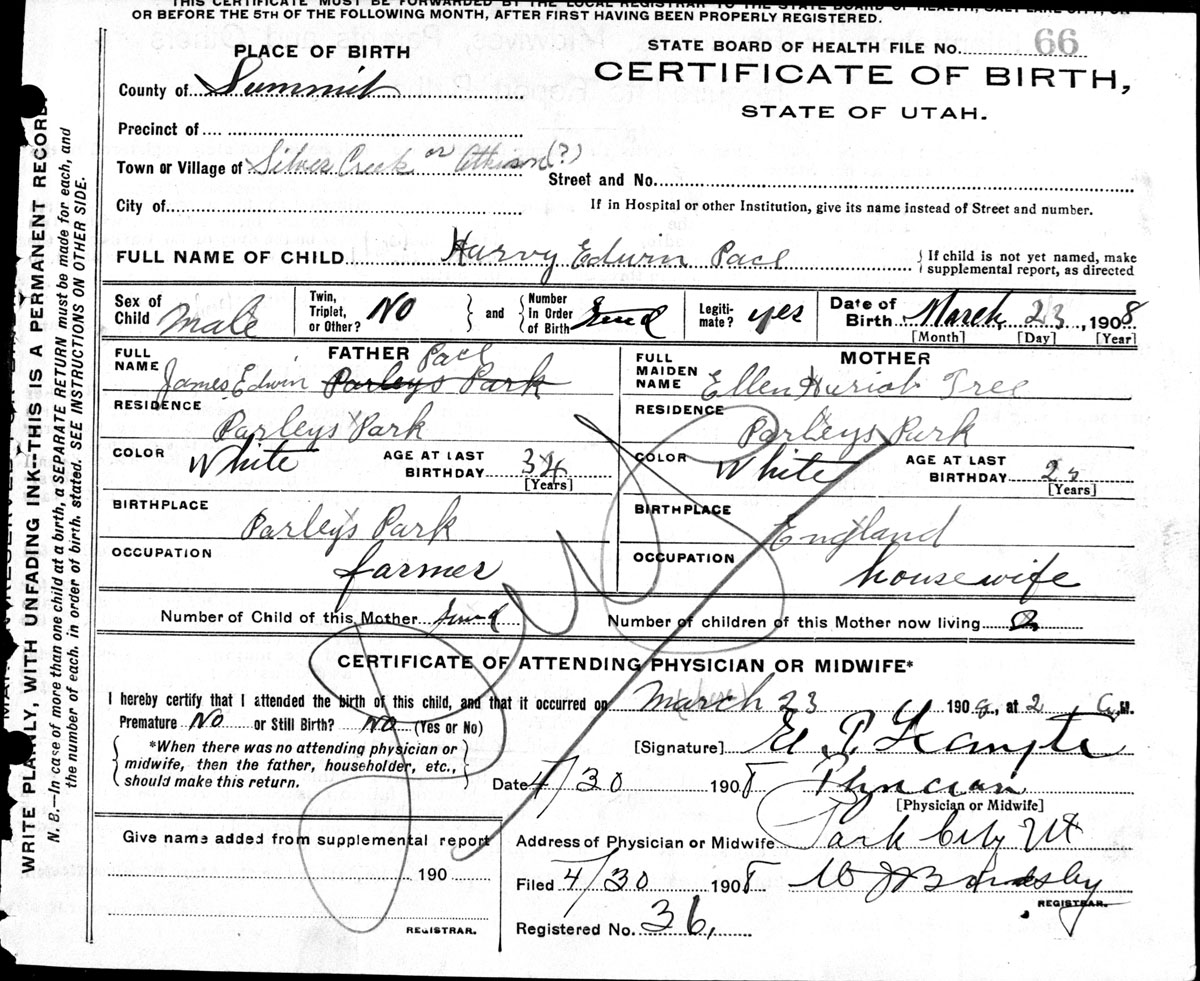 OR BEFORE THE 5TH OF THE FOLLOWING MONTH, AFTER FIRST HAVING BEEN PROPERLY REGISTERED.
STATE BOARD OF HEALTH FILE No. 66
PLACE OF BIRTH
CERTIFICATE OF BIRTH,
STATE OF UTAH.
County of Summit
Precinct of
Town or Village of Silver Creek or Atkinson (?)
Street and No.
City of
If in Hospital or other Institution, give its name instead of Street and number.
FULL NAME OF CHILD Harvy Edwin Pace
If child is not yet named, make supplemental report, as directed
Sex of Child Male
Twin, Triplet, or Other? No
and
Number in Order of Birth
Legiti-mate? yes
Date of Birth March 23, 1908
[Month] [Day] [Year]
FATHER
FULL NAME James Edwin Parleys Park Pace
RESIDENCE Parleys Park
COLOR White AGE AT LAST BIRTHDAY 34 [Years]
BIRTHPLACE Parleys Park
OCCUPATION farmer
MOTHER
FULL MAIDEN NAME Ellen Tree
RESIDENCE Parleys Park
COLOR White AGE AT LAST BIRTHDAY [Years]
BIRTHPLACE England
OCCUPATION housewife
Number of Child of this Mother
Number of children of this Mother now living 2
CERTIFICATE OF ATTENDING PHYSICIAN OR MIDWIFE*
I hereby certify that I attended the birth of this child, and that it occurred on March 23 1908, at 2 A.M.
Premature No or Still Birth? No (Yes or No)
*When there was no attending physician or midwife, then the father, householder, etc., should make this return.
[Signature]
Date 4/30 1908
[Physician or Midwife]
Give name added from supplemental report
190
REGISTRAR.
Address of Physician or Midwife Park City Ut
Filed 4/30 1908 W J
REGISTRAR.
Registered No. 36,
WRITE PLAINLY, WITH UNFADING INK--THIS IS A PERMANENT RECORD.
N. B.—In case of more than one child at a birth, a SEPARATE RETURN must be made for each, and
the number of each, in order of birth, stated. SEE INSTRUCTIONS ON OTHER SIDE.